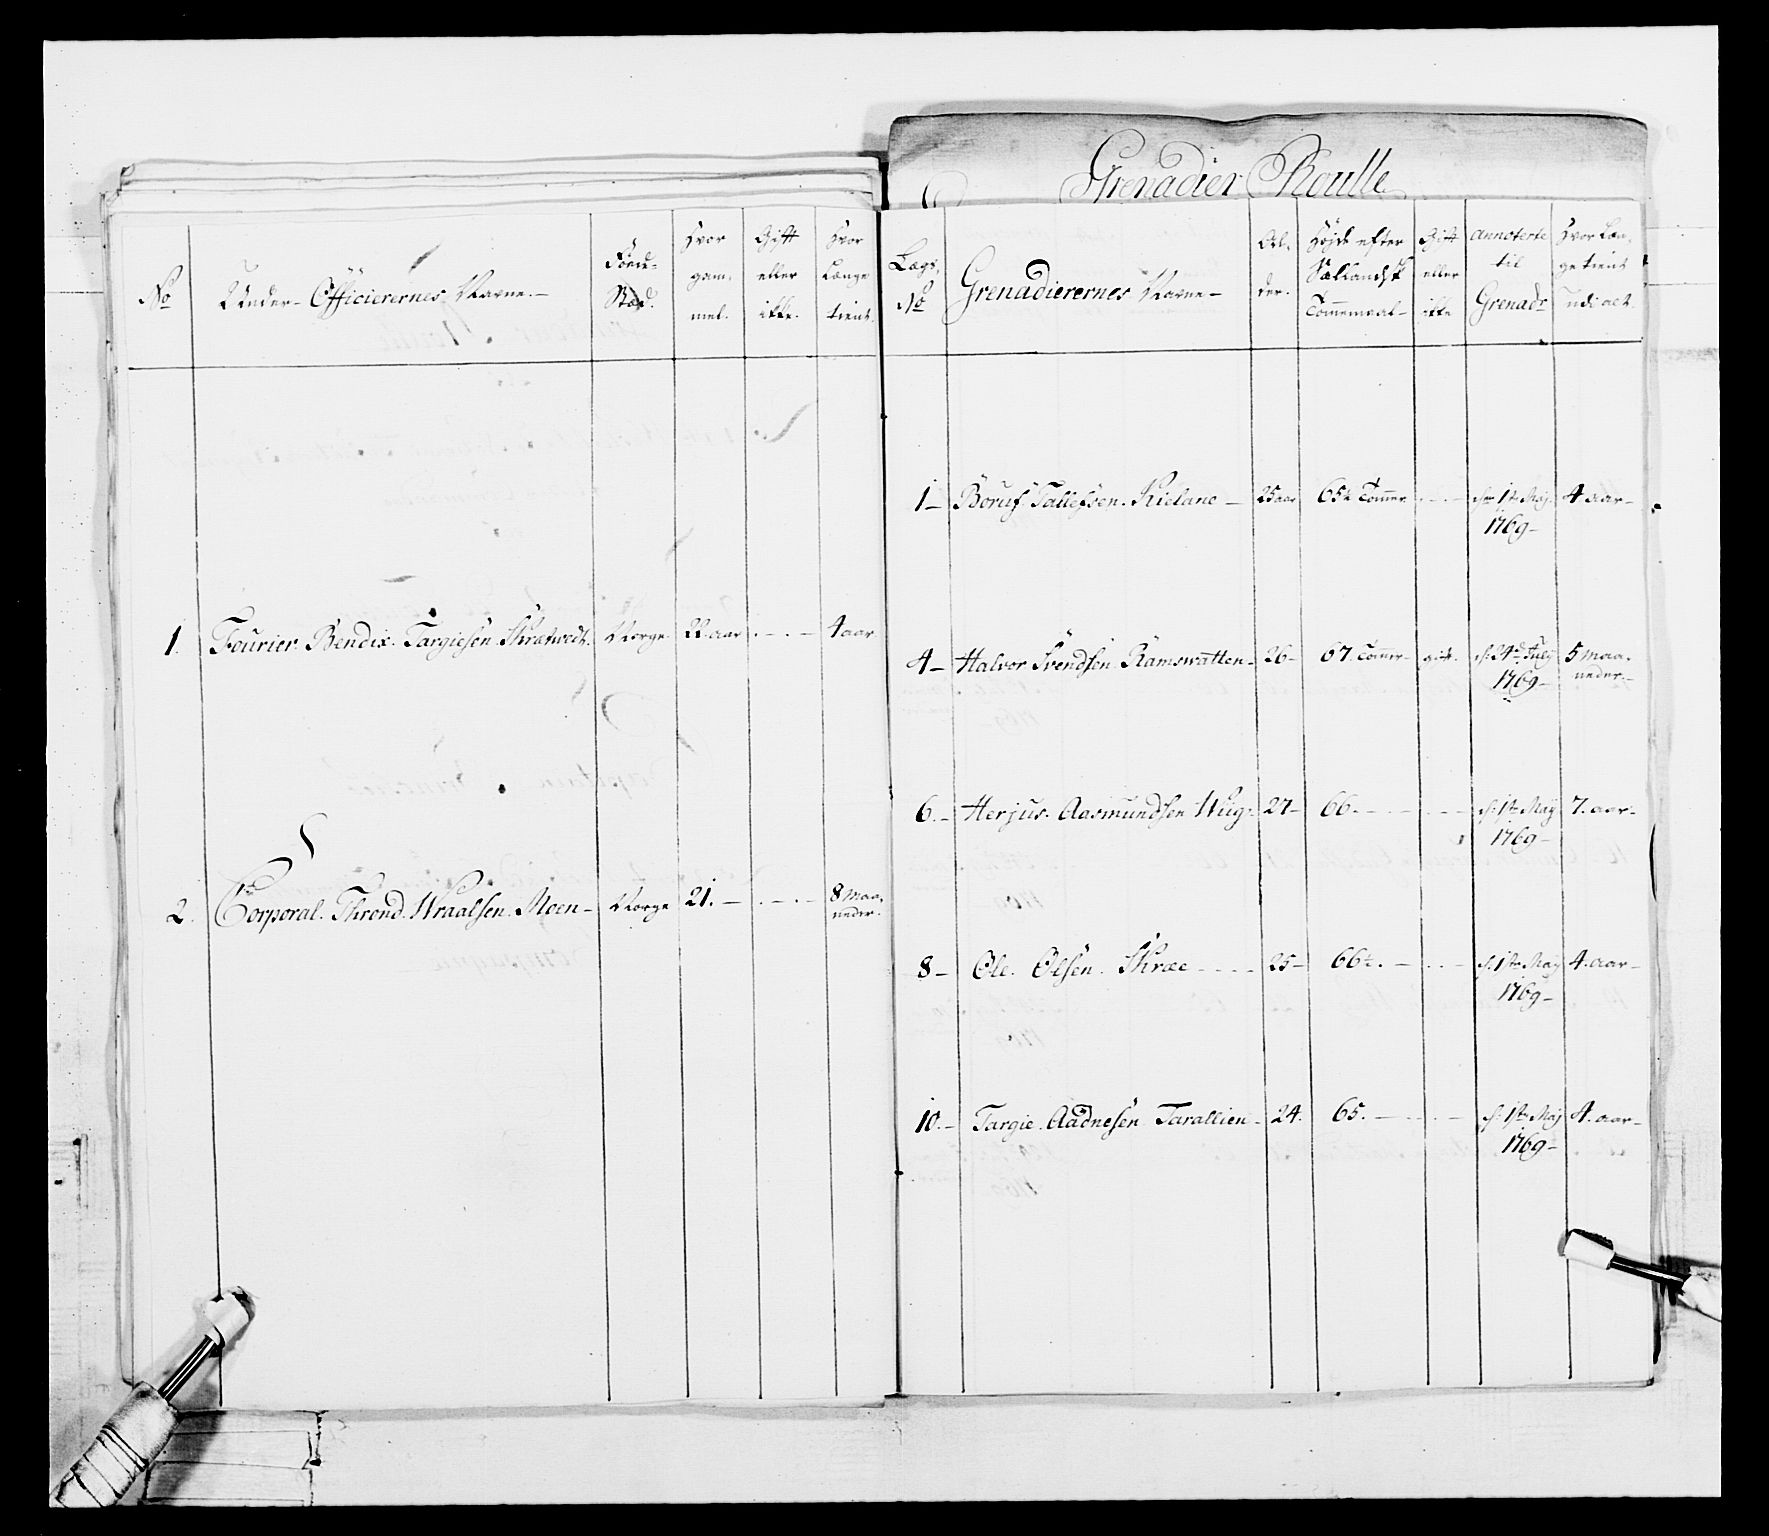 Grenadier Roulle
No
Under-Officierernes Navne.-
Føede-
Stæd.
Hvor
gam-
mel.
Gift
eller
ikke.
Hvor
Længe
tient.
1. Fourier. Bendix. Targiesen. Norge. 22. aar . - . - 4 aar
2. Corporal. Thrond. Wraalsen. Moen - Norge 21. - . - . - 8 Maa-
neder.
Lægs.
No
Grenadierernes Navne -
Al-
der.
Højde efter
Sællandsk
Tommemaal-
Gift
eller
ikke
Annoterte
til
Grenadr
Hvor Læn-
ge tient
udi alt.
1 - Tallefsen. Kieland - 25 aar 65½ Tommer . . . - 1ste May 4 aar -
1769 -
4 - Halvor Svendsen. Ramswatten - 26 - 67. Tommer - gift. d. 24de July 5 Maa-
1769 - neder. -
6. - Herjus. Aasmundsen Hug. 27 - 66. - d. 1ste May 7. aar -
1769 -
8 - Ole. Olsen. Skræe - - - 25 - 66½. - . . - d. 1ste May 4. aar -
1769 -
10. - Targie. Aadnesen Tarallien - 24. 65. - d. 1ste May 4. aar -
1769 -